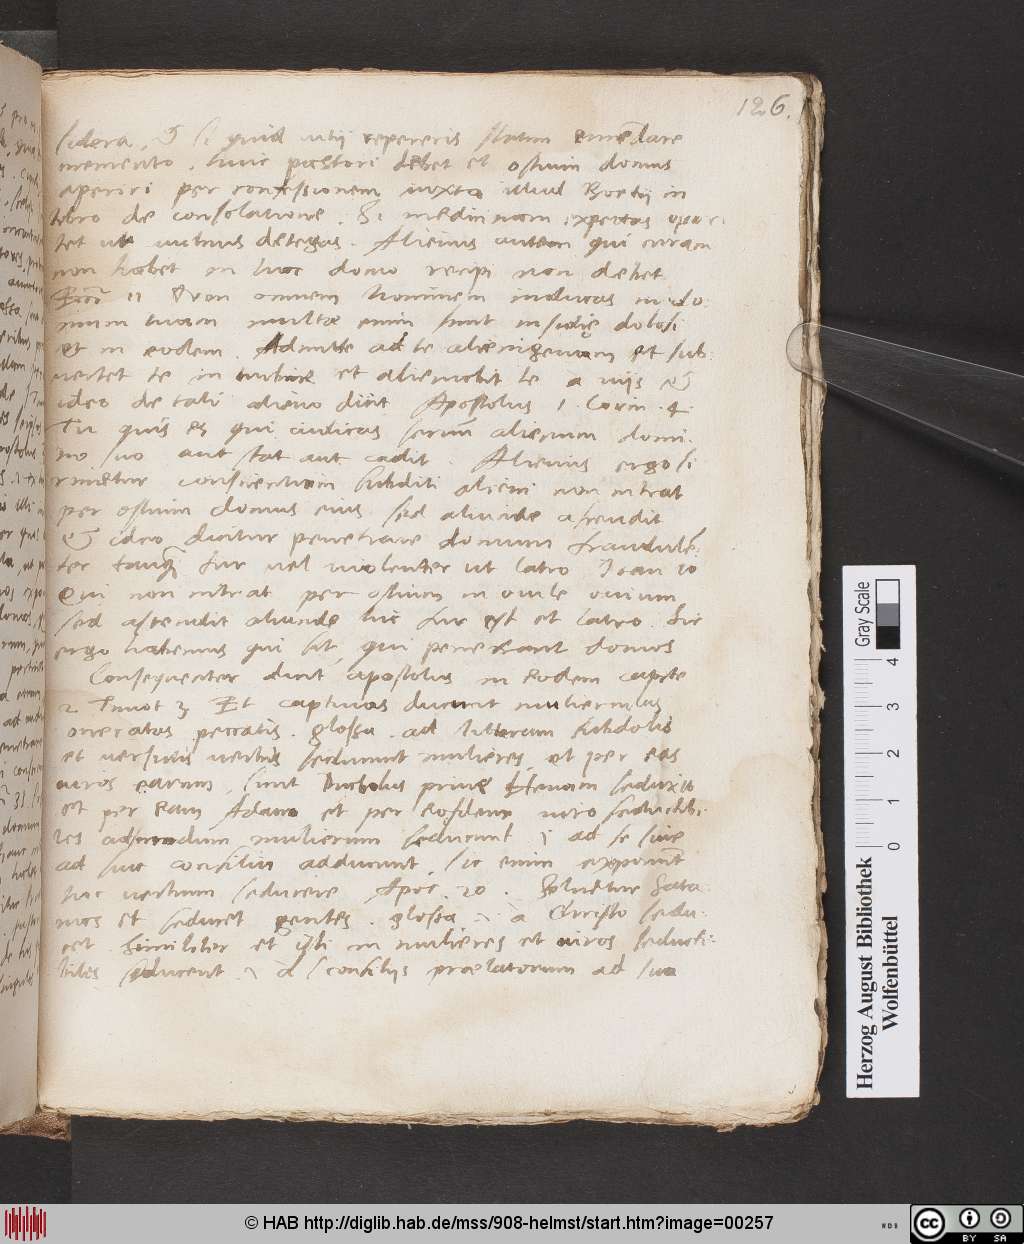 126.
sidera, & si quid vitij repereris statim emēdare
memento. huic pastori debet et ostium domus
aperiri per confessionem iuxta illud Boetij in
libro de consolatione. Si medicinam expectas opor-
tet ut vulnus detegas. Alienus autem qui curam
non habet in hac domo recipi non debet
Ecci 11 Non omnem hominem inducas in do
mum tuam multæ enim sunt insidię dolosi
et in eodem. Admitte ad te alienigenam et sub-
vertet te in turbine et alienabit te a viis &
ideo de tali alieno dicit Apostolus 1. Corin. 4.
Tu quis es qui iudicas servum alienum domi-
no suo aut stat aut cadit. Alienus ergo si
conscientiam subditi alieni non intrat
per ostium domus eius sed aliunde ascendit
& ideo dicitur penetrare domum fraudulē-
ter tanq fur vel violenter ut latro Joan 10
Qui non intrat per ostium in ovile ovium
sed ascendit aliunde hic fur est et latro. Sic
ergo habemus qui sit, qui penetrant domos
Consequenter dicit apostolus in eodem capite
2. Timot 3. Et captivas ducunt mulierculas
oneratas peccatis. glossa. ad litteram subdolis
et versutis verbis seducunt mulieres, et per eas
viros earum, sicut Diabolus prius Hevam seduxit
et per eam Adam et per eosdem viro seducibi-
les ad modum mulierum seducunt i ad se sive
ad sua consilia adducunt, sic enim exponit
hic verbum seducere Apoc. 20. Solvetur Sata-
nas et seducet gentes. glossa. i. a Christo sedu-
cet Similiter et isti in mulieres et viros seducti-
biles seducent i a consilijs prælatorum ad sua
Herzog August Bibliothek
Wolfenbüttel
Gray Scale
0 1 2 3 4
© HAB http://diglib.hab.de/mss/908-helmst/start.htm?image=00257
WDB
cc BY SA